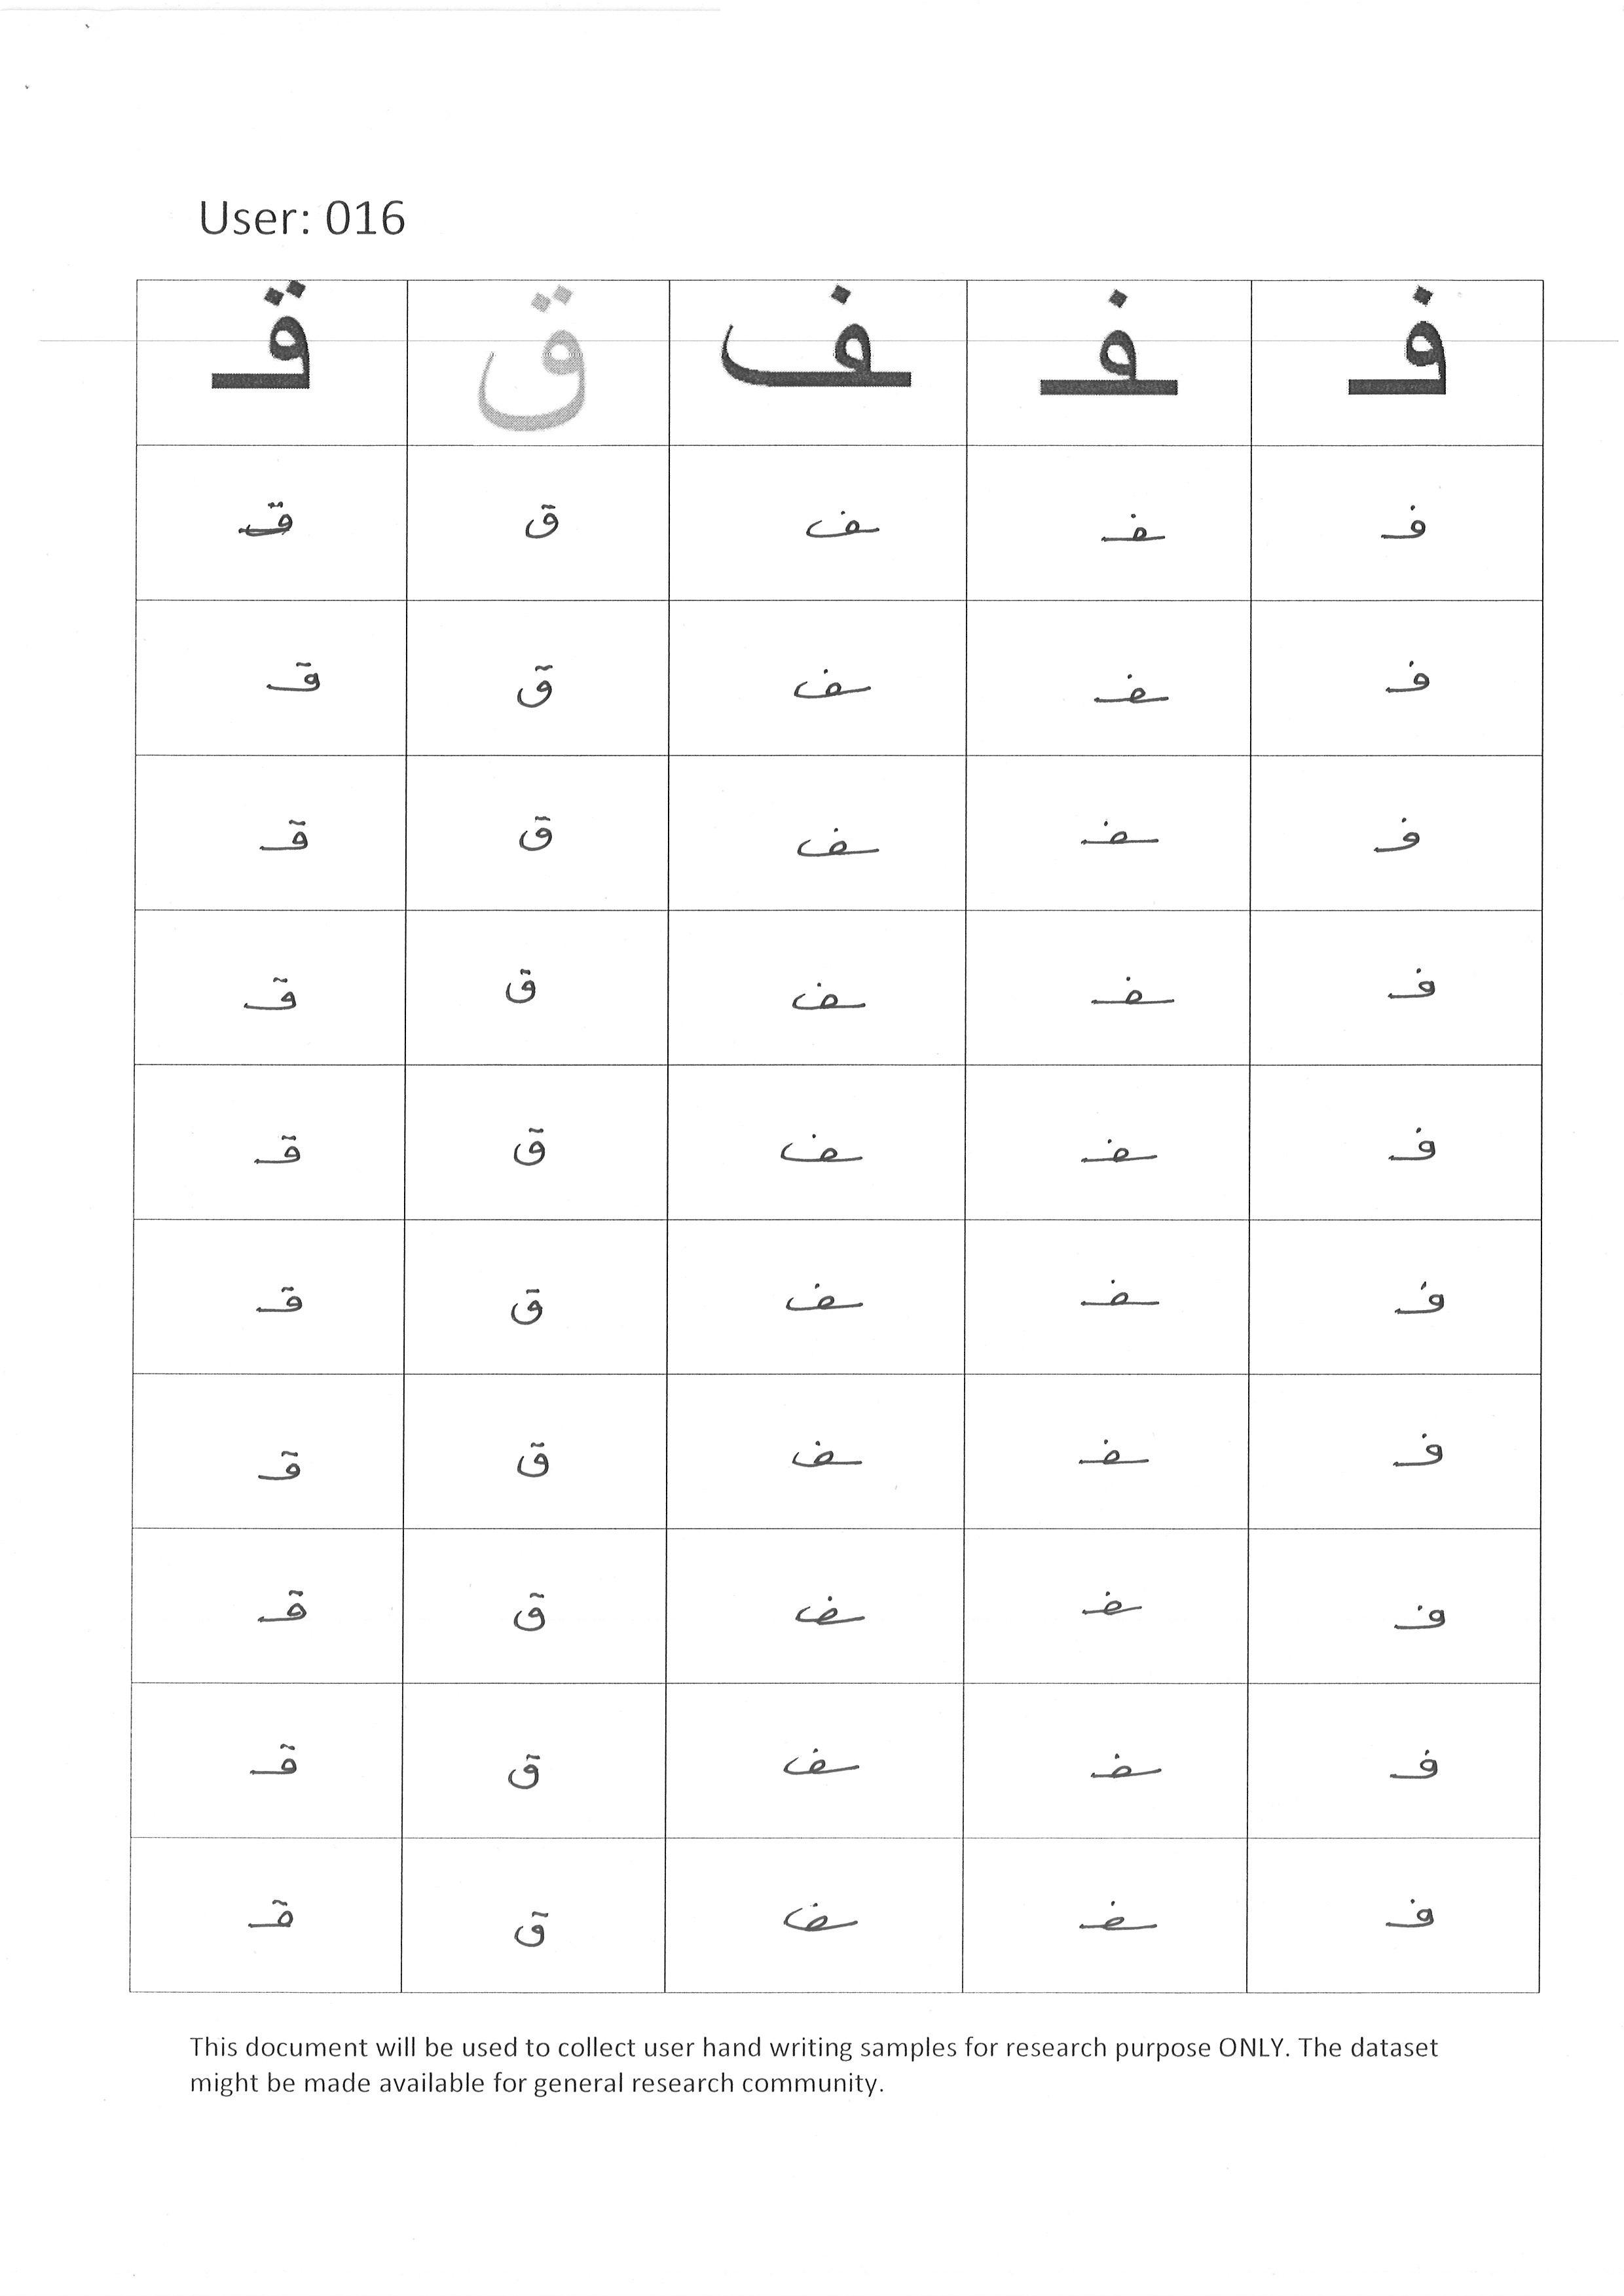 User: 016
فـ ـفـ ـف ق قـ
فـ ـفـ ـف ق قـ
فـ ـفـ ـف ق قـ
فـ ـفـ ـف ق قـ
فـ ـفـ ـف ق قـ
فـ ـفـ ـف ق قـ
فـ ـفـ ـف ق قـ
فـ ـفـ ـف ق قـ
فـ ـفـ ـف ق قـ
فـ ـفـ ـف ق قـ
فـ ـفـ ـف ق قـ
This document will be used to collect user hand writing samples for research purpose ONLY. The dataset
might be made available for general research community.